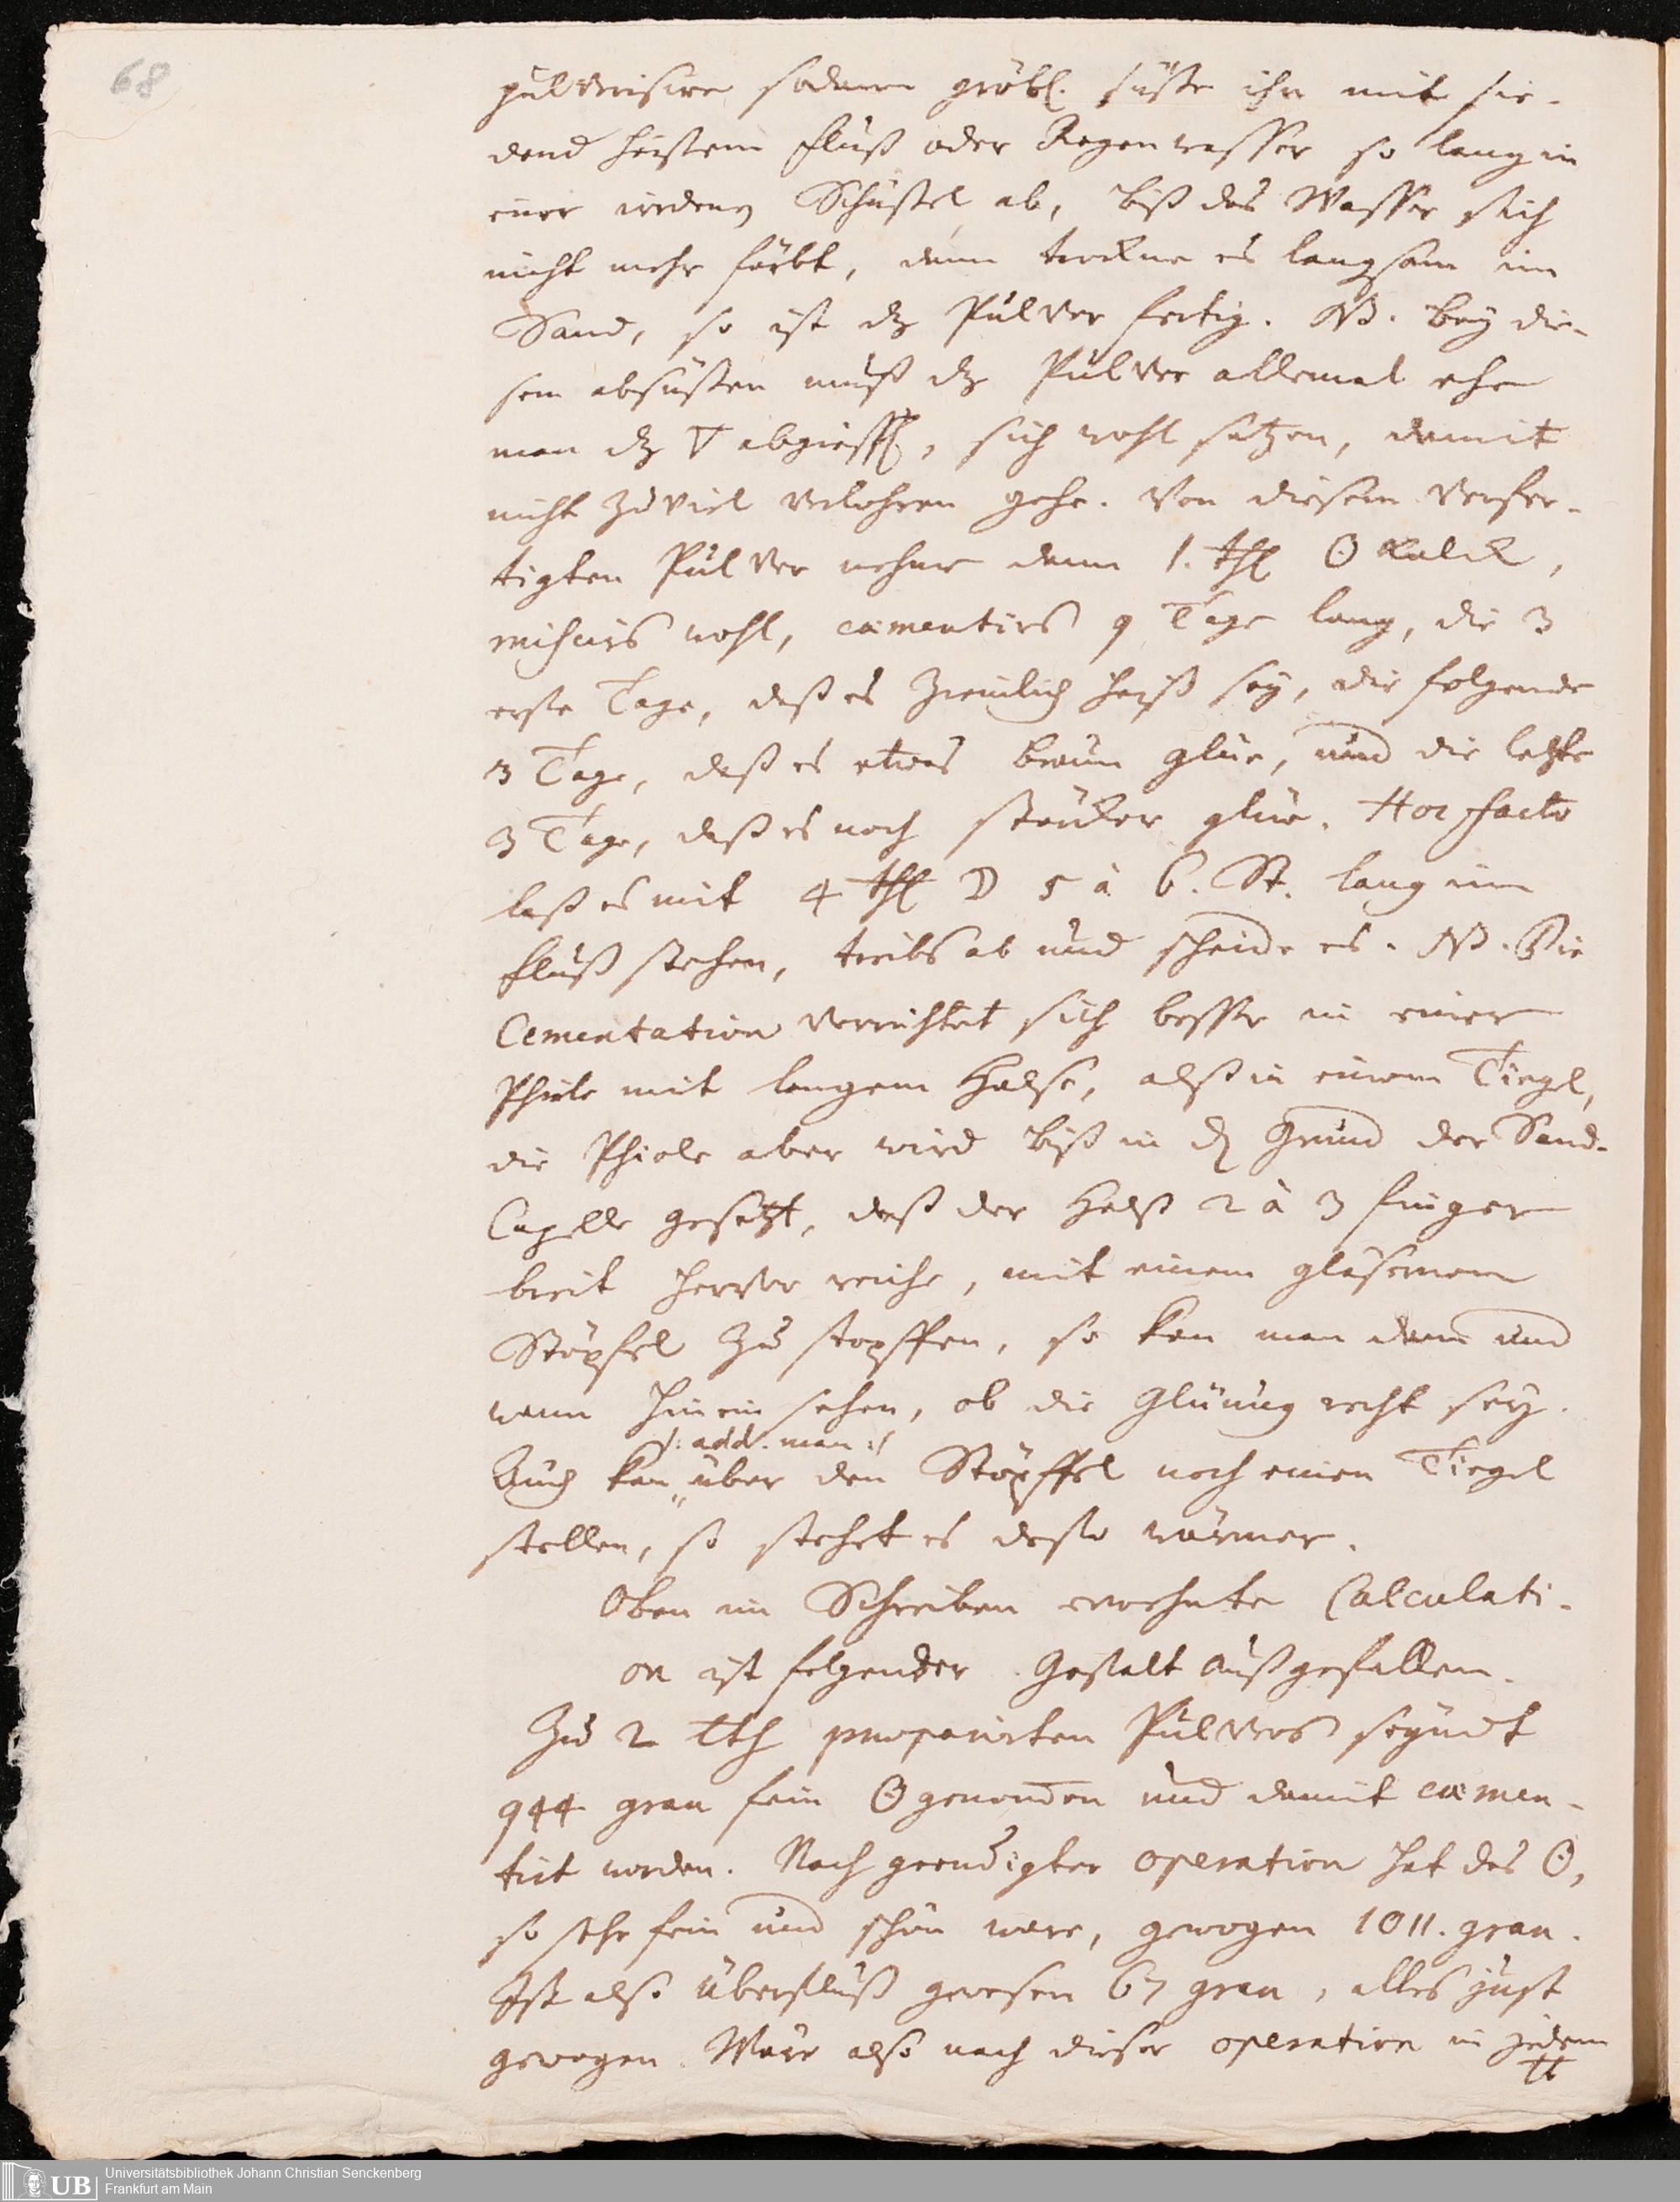 68
pulverisire sodann gröbl. süße ihn mit sie-
dend heißem Fluß oder Regenwasser so lang in
einer irdenen Schüßel ab, biß das Wasser sich
nicht mehr färbt, dann trockne es langsam im
Sand, so ist dz Pulver fertig. NB. Bey die-
sem absüßen muß dz Pulver allemal ehe
man dz 🜄 abgiesst, sich wohl setzen, damit
nicht zu viel verlohren gehe. Von diesem verfer-
tigten Pulver nehme dann 1. thl ☉ Kalck,
mischs wohl, cæmentirs 9 Tage lang, die 3
erste Tage, daß es ziemlich heiß sey, die folgende
3 Tage, daß es etwas braun glüe, und die letzte
3 Tage, daß es noch stärcker glüe. Hoc facto
laß es mit 4 thl ☽ 5 à 6. St. lang im
Fluß stehen, treibs ab und scheide es. NB. Die
Cementation verrichtet sich besser in einer
Phiole mit langem Halse, alß in einem Tiegel,
die Phiole aber wird biß in dz Grund der Sand-
Capelle gesetzt, daß der Halß 2 à 3 finger
breit hervor reiche, mit einem gläsernen
Stöpfel zu stopffen, so kan man dann und
wann hinein sehen, ob die Glüung recht sey.
/: add. man :/
Auch kan „ über den Stöpffel noch einen Tiegel
stellen, so stehet es desto wärmer.
Oben im Schreiben erwehnte Calculati-
on ist folgender Gestalt außgefallen.
Zu 2 lth præparirten Pulvers seyndt
944 gran fein ☉ genommen und damit cæmen-
tirt worden. Nach geendigter operation hat das ☉,
so sehr fein und schön ware, gewogen 1011. gran.
Ist also überfluß gewesen 67 gran, alles just
gewogen. Wäre also nach dieser operation in jedem
℔
UB Universitätsbibliothek Johann Christian Senckenberg
Frankfurt am Main